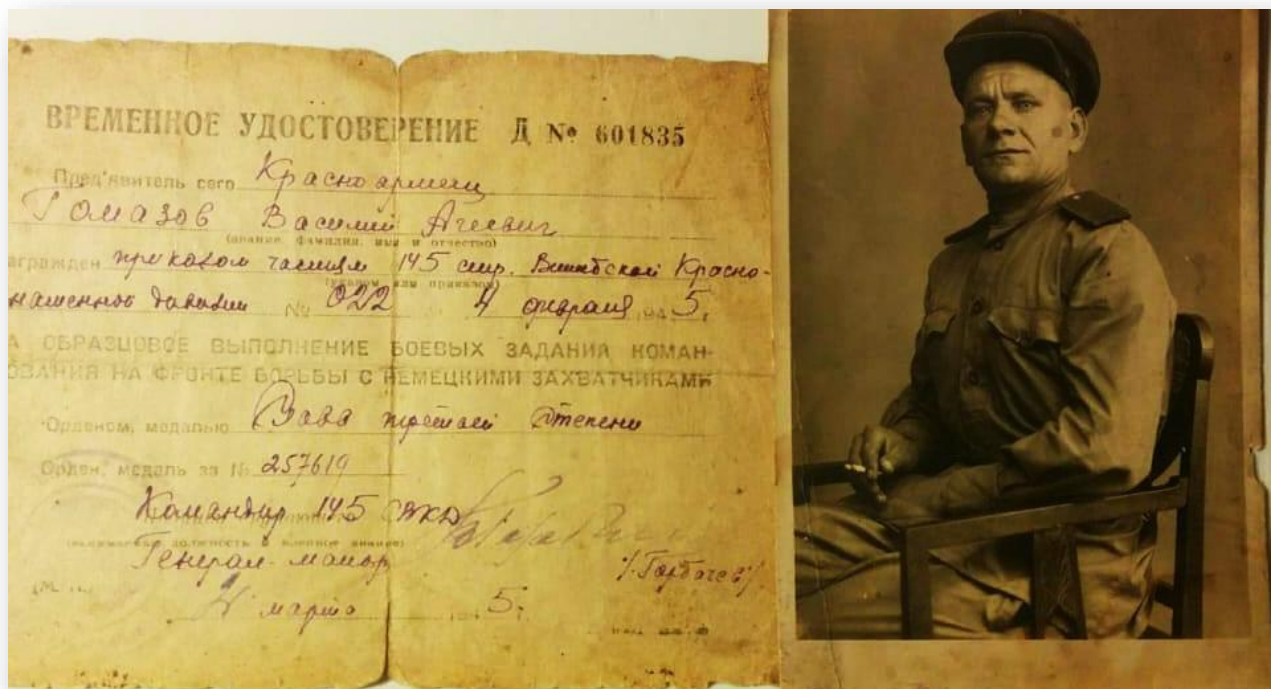 ВРЕМЕННОЕ УДОСТОВЕРЕНИЕ Д № 601835
Пред'явитель сего Красноармеец
Томазов Василий Агеевич
(звание, фамилия, имя и отчество)
награжден приказом частям 145 стр. Витебской Красно-
(указом или приказом)
наменной дивизии № 022 4 февраля 1945 г.
А ОБРАЗЦОВОЕ ВЫПОЛНЕНИЕ БОЕВЫХ ЗАДАНИЙ КОМАН-
ОВАНИЯ НА ФРОНТЕ БОРЬБЫ С НЕМЕЦКИМИ ЗАХВАТЧИКАМИ
Орденом, медалью Слава третьей степени
Орден, медаль за № 257619
Командир 145 СВКД
должность и военное звание)
Генерал-майор /Горбачев/
4 марта 5